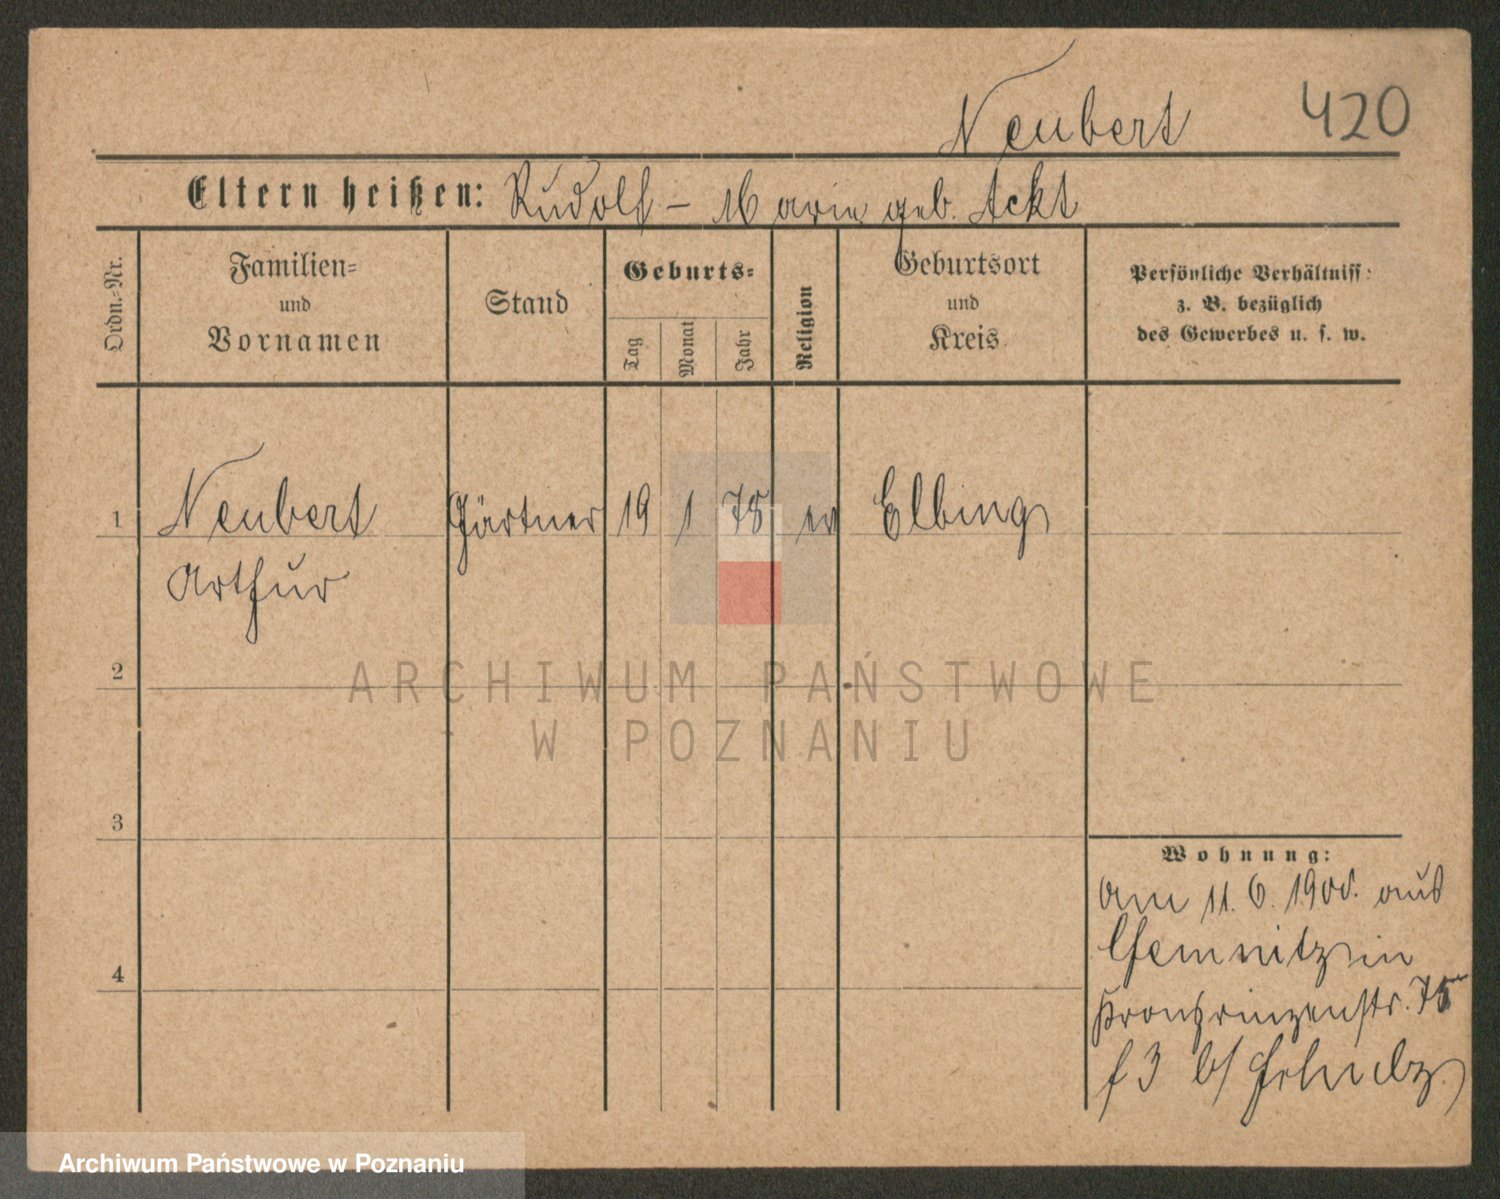 Neubert 420
Eltern heißen: Rudolf – Marie geb. Ackt
Ordn.-Nr.
Familien-
und
Vornamen
Stand
Geburts-
Tag
Monat
Jahr
Religion
Geburtsort
und
Kreis
Persönliche Verhältniss
z. B. bezüglich
des Gewerbes u. s. w.
1 Neubert Gärtner 19 1 78 ev Elbing
Arthur
2
3
4
Wohnung:
am 11. 6. 190 aus
Chemnitz in
Kronprinzenstr. 75
f 3 b/
ARCHIWUM PAŃSTWOWE
W POZNANIU
Archiwum Państwowe w Poznaniu